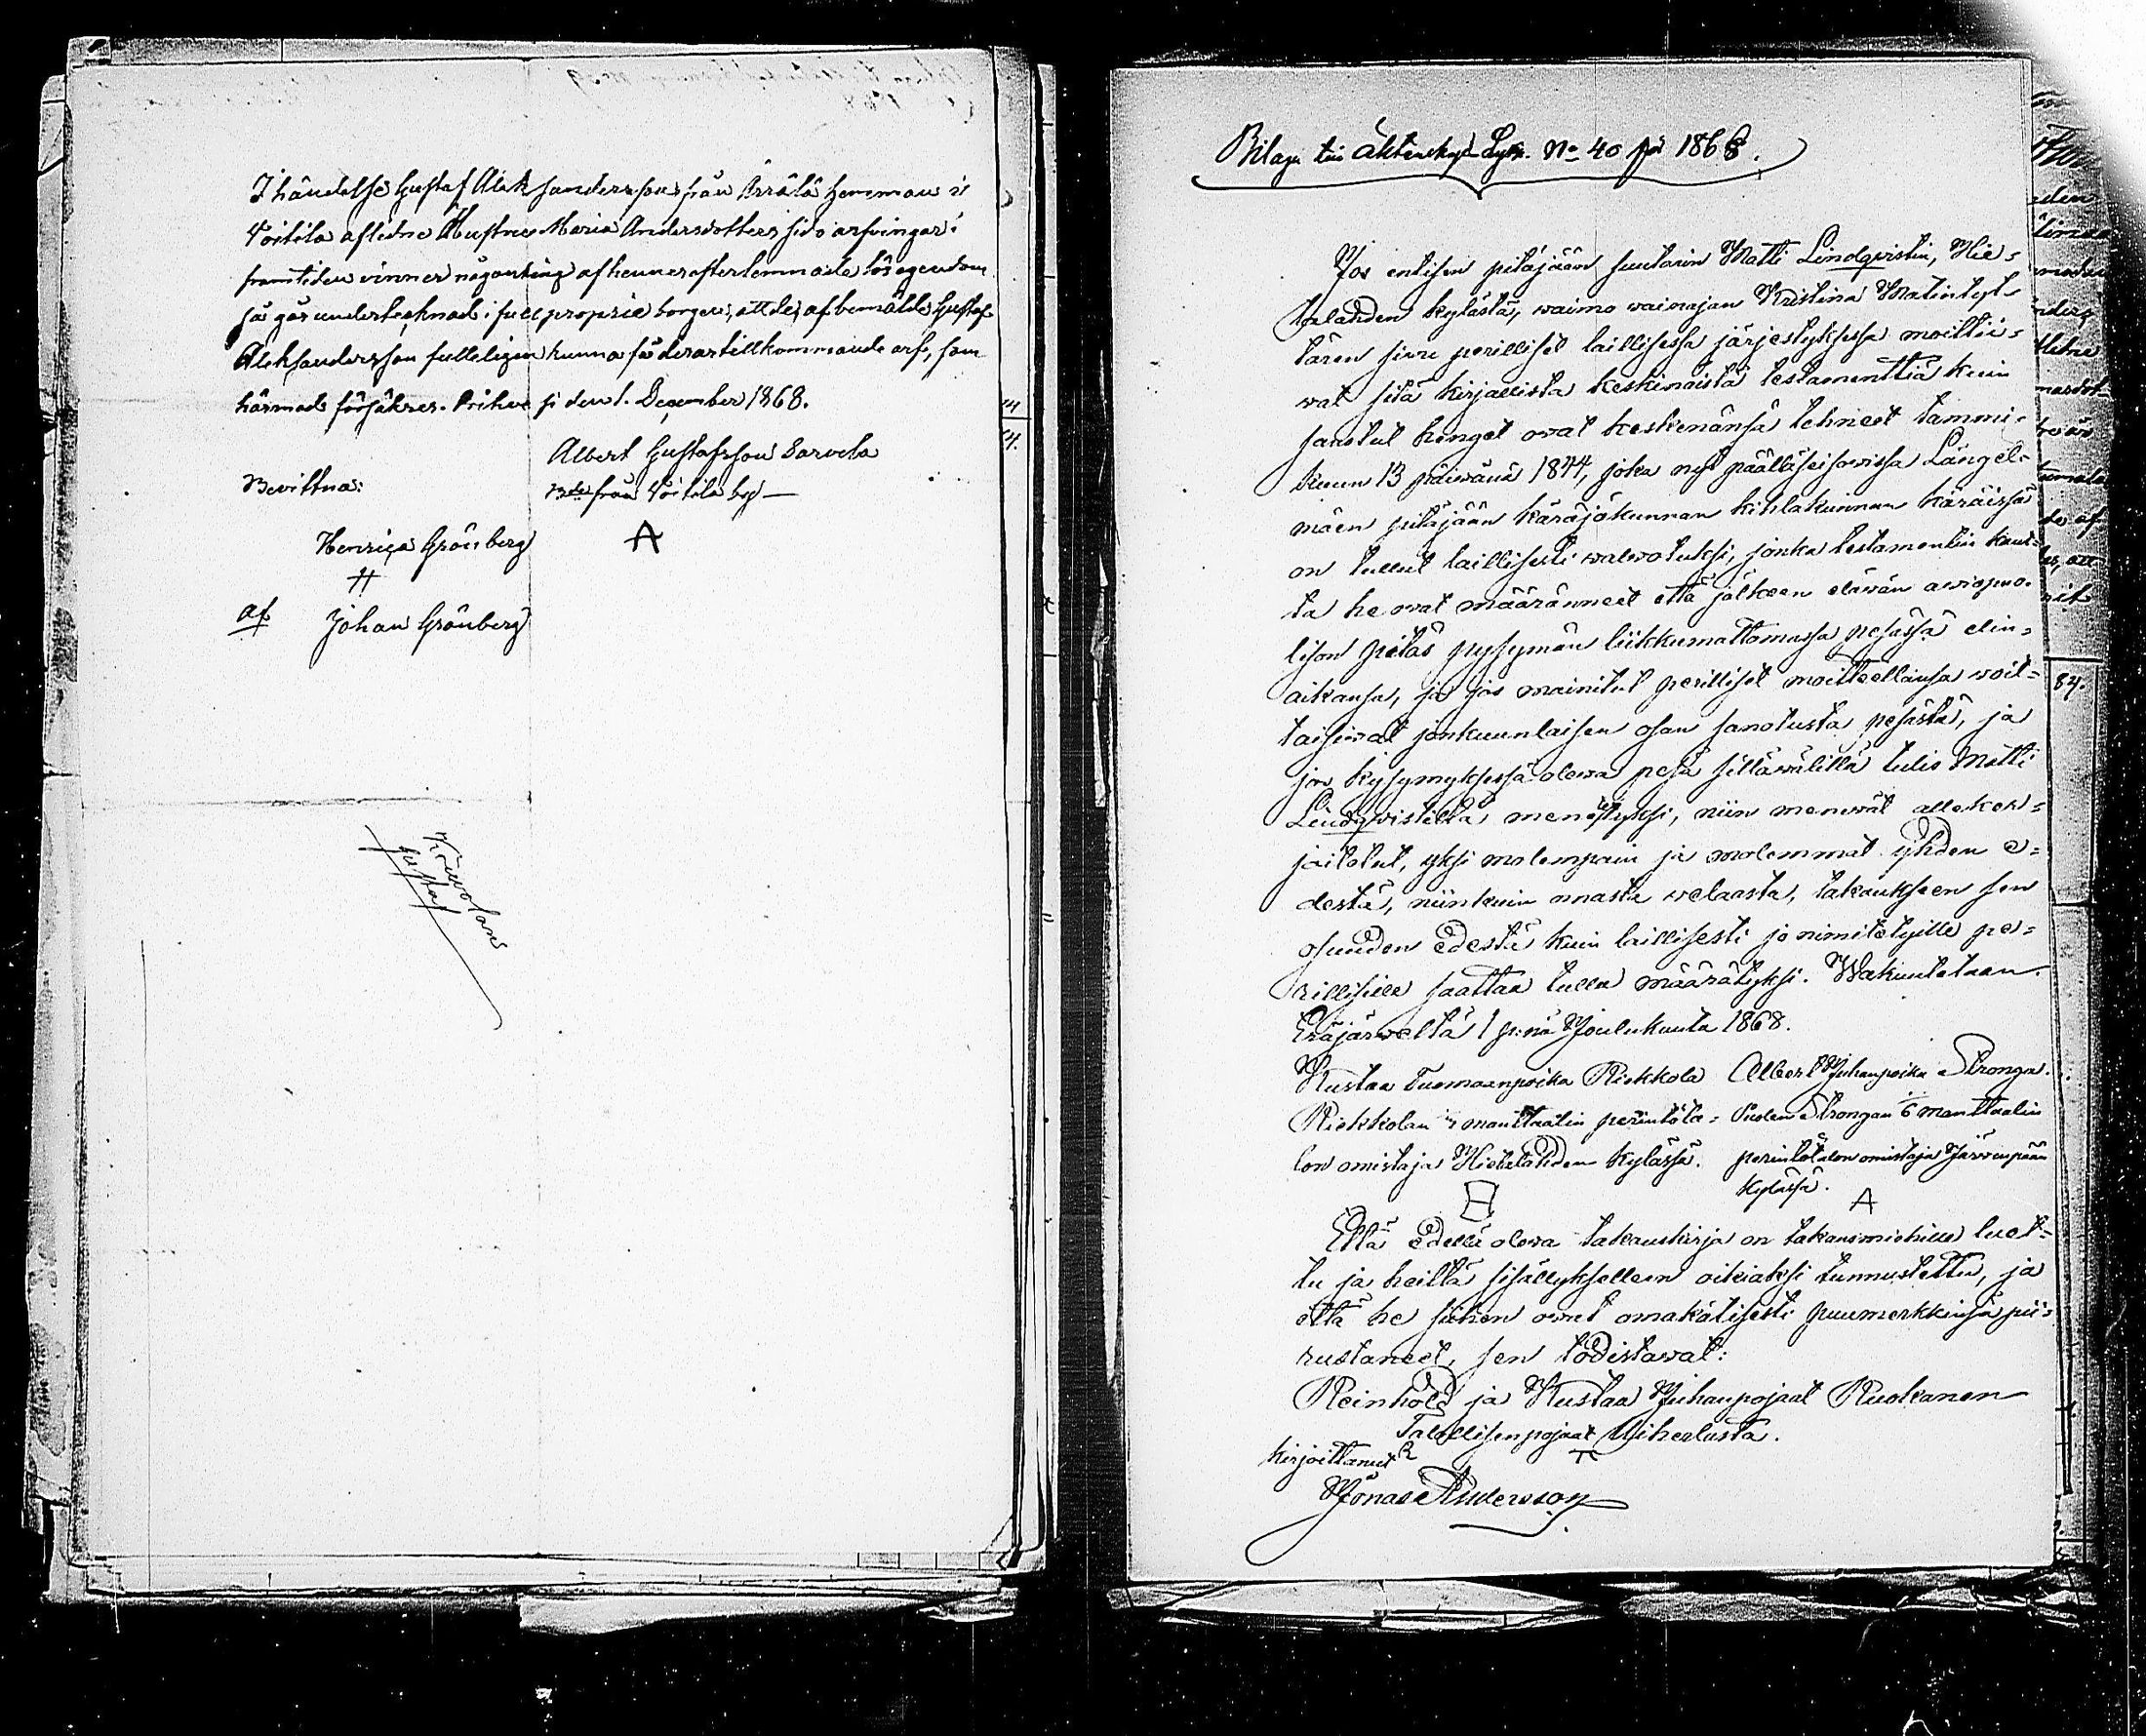 I händelse Gustaf Aleksandersson från Ärrälä hemman i
Voitila aflidne Hustru Maria Andersdotters sido arfvingar i
framtiden vinner någonting af hennes efterlemnade lösegendom
så går undertecknad i full proprie borgen, att de, af bemälde Gustaf
Aleksandersson fulleligen kunna få deras tillkommande arf, som
härmed försäkras. Orihvesi den 1. December 1868.
Albert Gustafsson Sarvela
Bevittna:
från Voitila by
Henric Grönberg
A
H
af Johan Grönberg
Gustaf
Bilaga till Äktenskaps Lysn. No 40 på 1868.
Jos entisen pitäjään suutarin Matti Lindqvistin, Hie-
talahden kylästä, waimo wainajan Kristina Matintyt-
tären siwu perilliset laillisessa järjestyksessä moittii-
wat sitä kirjallista keskinäistä testamenttia kuin
sanotut henget owat keskenänsä tehneet tammi-
kuun 13 päiwänä 1844, joka nyt päälläseisowissa Längel-
mäen pitäjään käräjäkunnan kihlakunnan käräissä
on tullut laillisesti walwotuksi, jonka testamentin kaut-
ta he owat määränneet että jälkeen eläwän awiopuo-
lison pitää pysymän liikkumattomassa pesässä elin-
aikansa, ja jos mainitut perilliset moitteellansa woit-
taisiwat jonkuunlaisen osan sanotusta pesästä, ja
jos kysymyksessä olewa pesä sillä wälillä tulis Matti
Lindqvistiltä menetetyksi, niin menewät allekir-
joitetut, yksi molempain ja molemmat yhden e-
destä, niinkuin omasta welasta, takaukseen sen
osuuden edestä kuin laillisesti jo nimitetyille pe-
rillisille saattaa tulla määrätyksi. Wakuutetaan.
Eräjärweltä 1 p:nä Joulukuuta 1868.
Kustaa Tuomaanpoika Riekkola Albert Juhanpoika Stronga.
Riekkolan manttaalin perintöta- Uuden Strongan 6 manttaalin
lon omistaja Hietalahden kylässä. perintötalon omistaja Järwenpään
kylässä.
A
Että edellä olewa takauskirja on takausmiehille luet-
tu ja heiltä sisällyksellen oikiaksi tunnustettu, ja
että he siihen owat omakätisesti puumerkkinsä pii-
rustaneet, sen todistawat:
Reinhold ja Kustaa Juhanpojaat Ruokanen
Talollisenpojaat Uiherlasta.
kirjoittanut
Jonas Andersson
84.